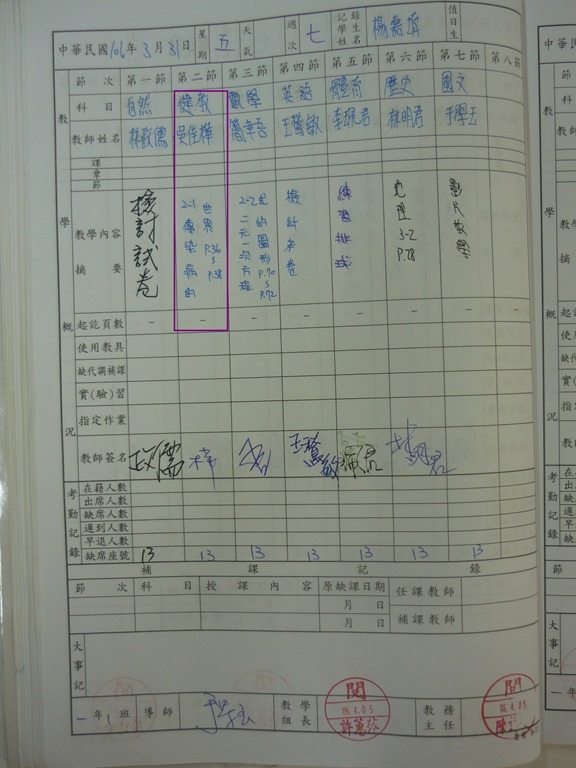 中華民國106年3月31日 星期 五 天氣 週次 七 記錄學生姓名 楊嘉 值日生
節次 第一節 第二節 第三節 第四節 第五節 第六節 第七節 第八節
科目 自然 健教 數學 英語 體育 歷史 國文
教師姓名 林政儒 吳佳樺 王鶯敏 李珮君 林明君
課
章
節
教學內容摘要 檢討試卷
2-1 世界的傳染病 P.36 P.38
2-2 二元一次方程式的圖形 P.70 P.72
檢討考卷
練習排球
3-2 P.78
影片教學
起訖頁數 – – – – – – –
使用教具
缺代調補課
實(驗)習
指定作業
教師簽名 政儒 樺
教學概況
考勤記錄
在籍人數
出席人數
缺席人數
遲到人數
早退人數
缺席座號 13 13 13 13 13 13 13
補課記錄
節次 科目 授課內容 原缺課日期 任課教師
月 日
月 日 補課教師
大事記
一年1班 導師 教學組長 閱 106.4.05 許蕙 教務主任 閱 陳